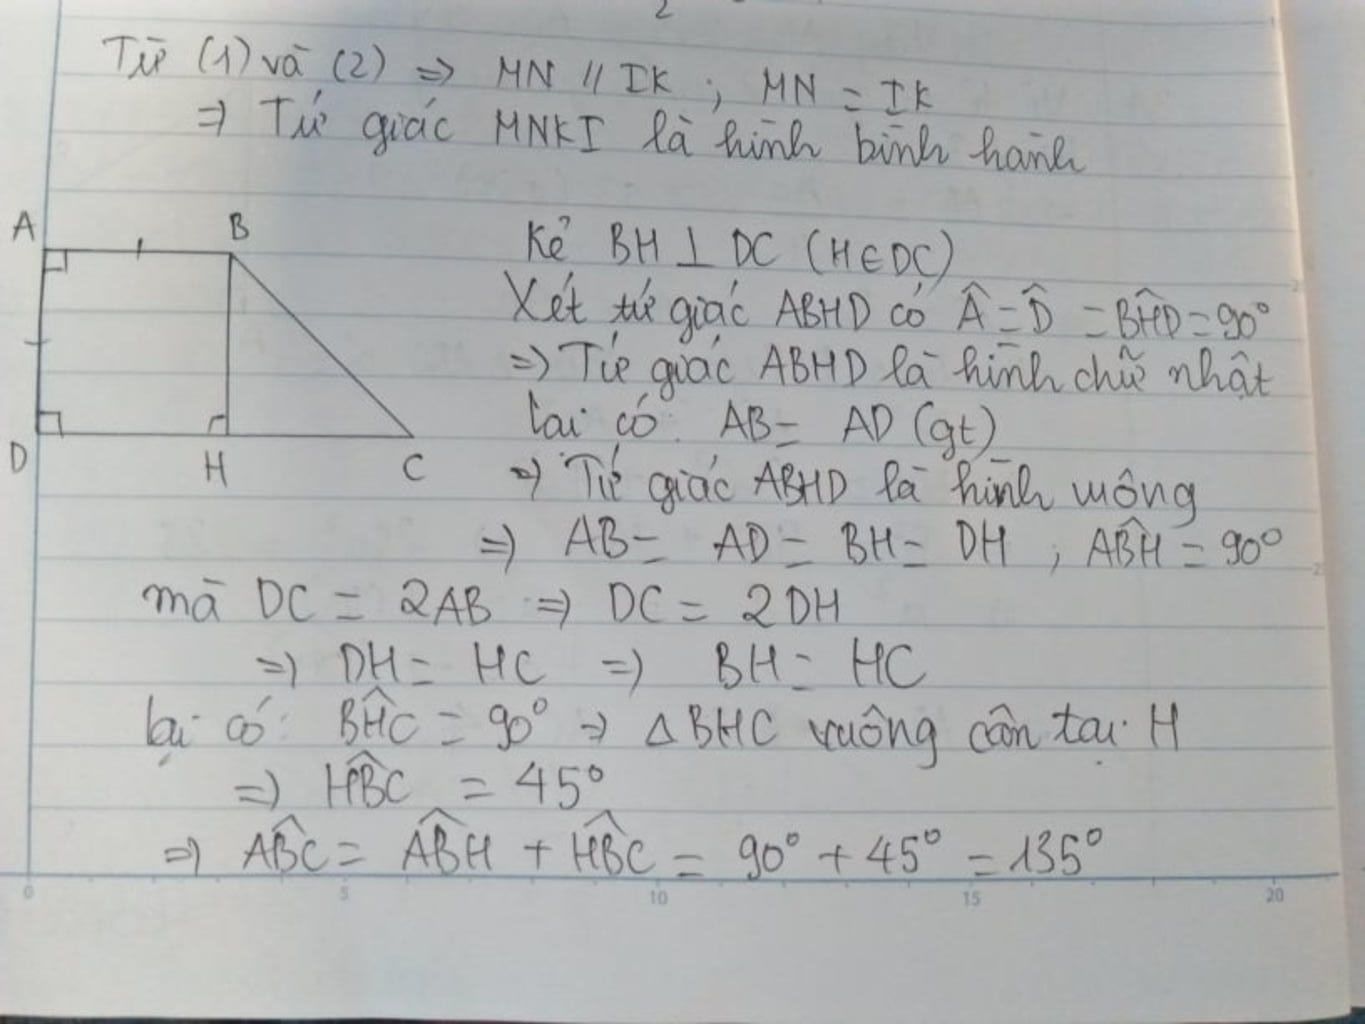 2
Từ (1) và (2) => MN // IK ; MN = IK
=> Tứ giác MNKI là hình bình hành
A B
D H C
Kẻ BH ⊥ DC (H∈DC)
Xét tứ giác ABHD có Â = D̂ = BĤD = 90°
=> Tứ giác ABHD là hình chữ nhật
lại có: AB = AD (gt)
=> Tứ giác ABHD là hình vuông
=> AB = AD = BH = DH ; AB̂H = 90°
mà DC = 2AB => DC = 2DH
=> DH = HC => BH = HC
lại có: BĤC = 90° => △BHC vuông cân tại H
=> HB̂C = 45°
=> AB̂C = AB̂H + HB̂C = 90° + 45° = 135°
0 5 10 15 20